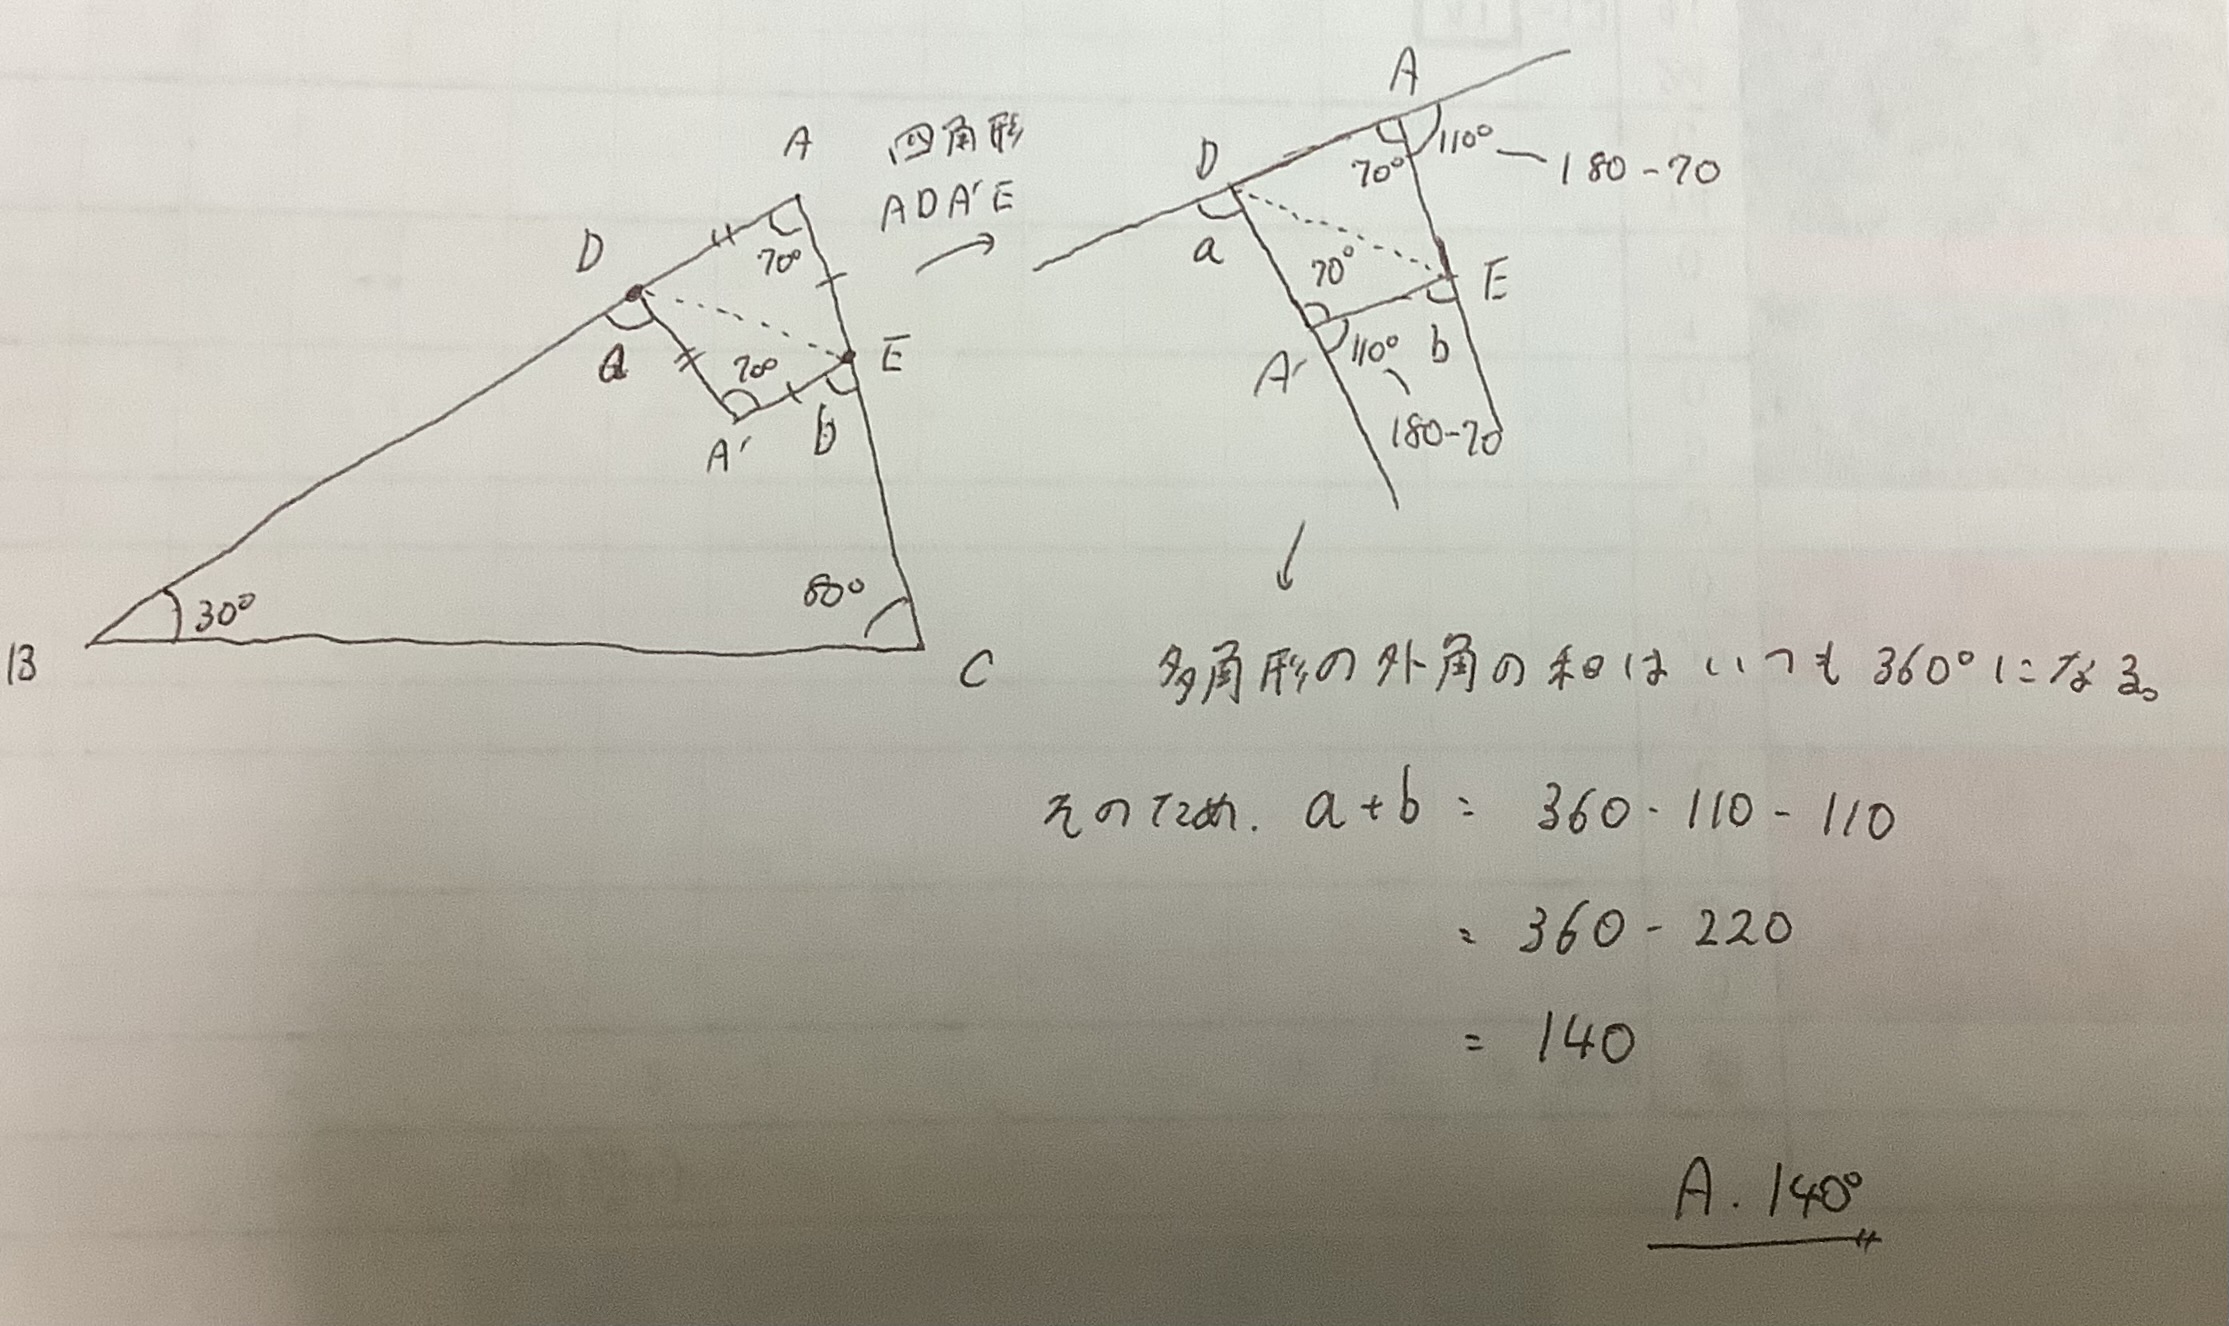 A
四角形
ADA'E
D
70°
a
70°
E
A'
b
30°
80°
B
C
A
D
70°
110°
180-70
a
70°
E
A'
110°
b
180-70
多角形の外角の和はいつも360°になる。
そのため、a+b = 360-110-110
= 360-220
= 140
A. 140°